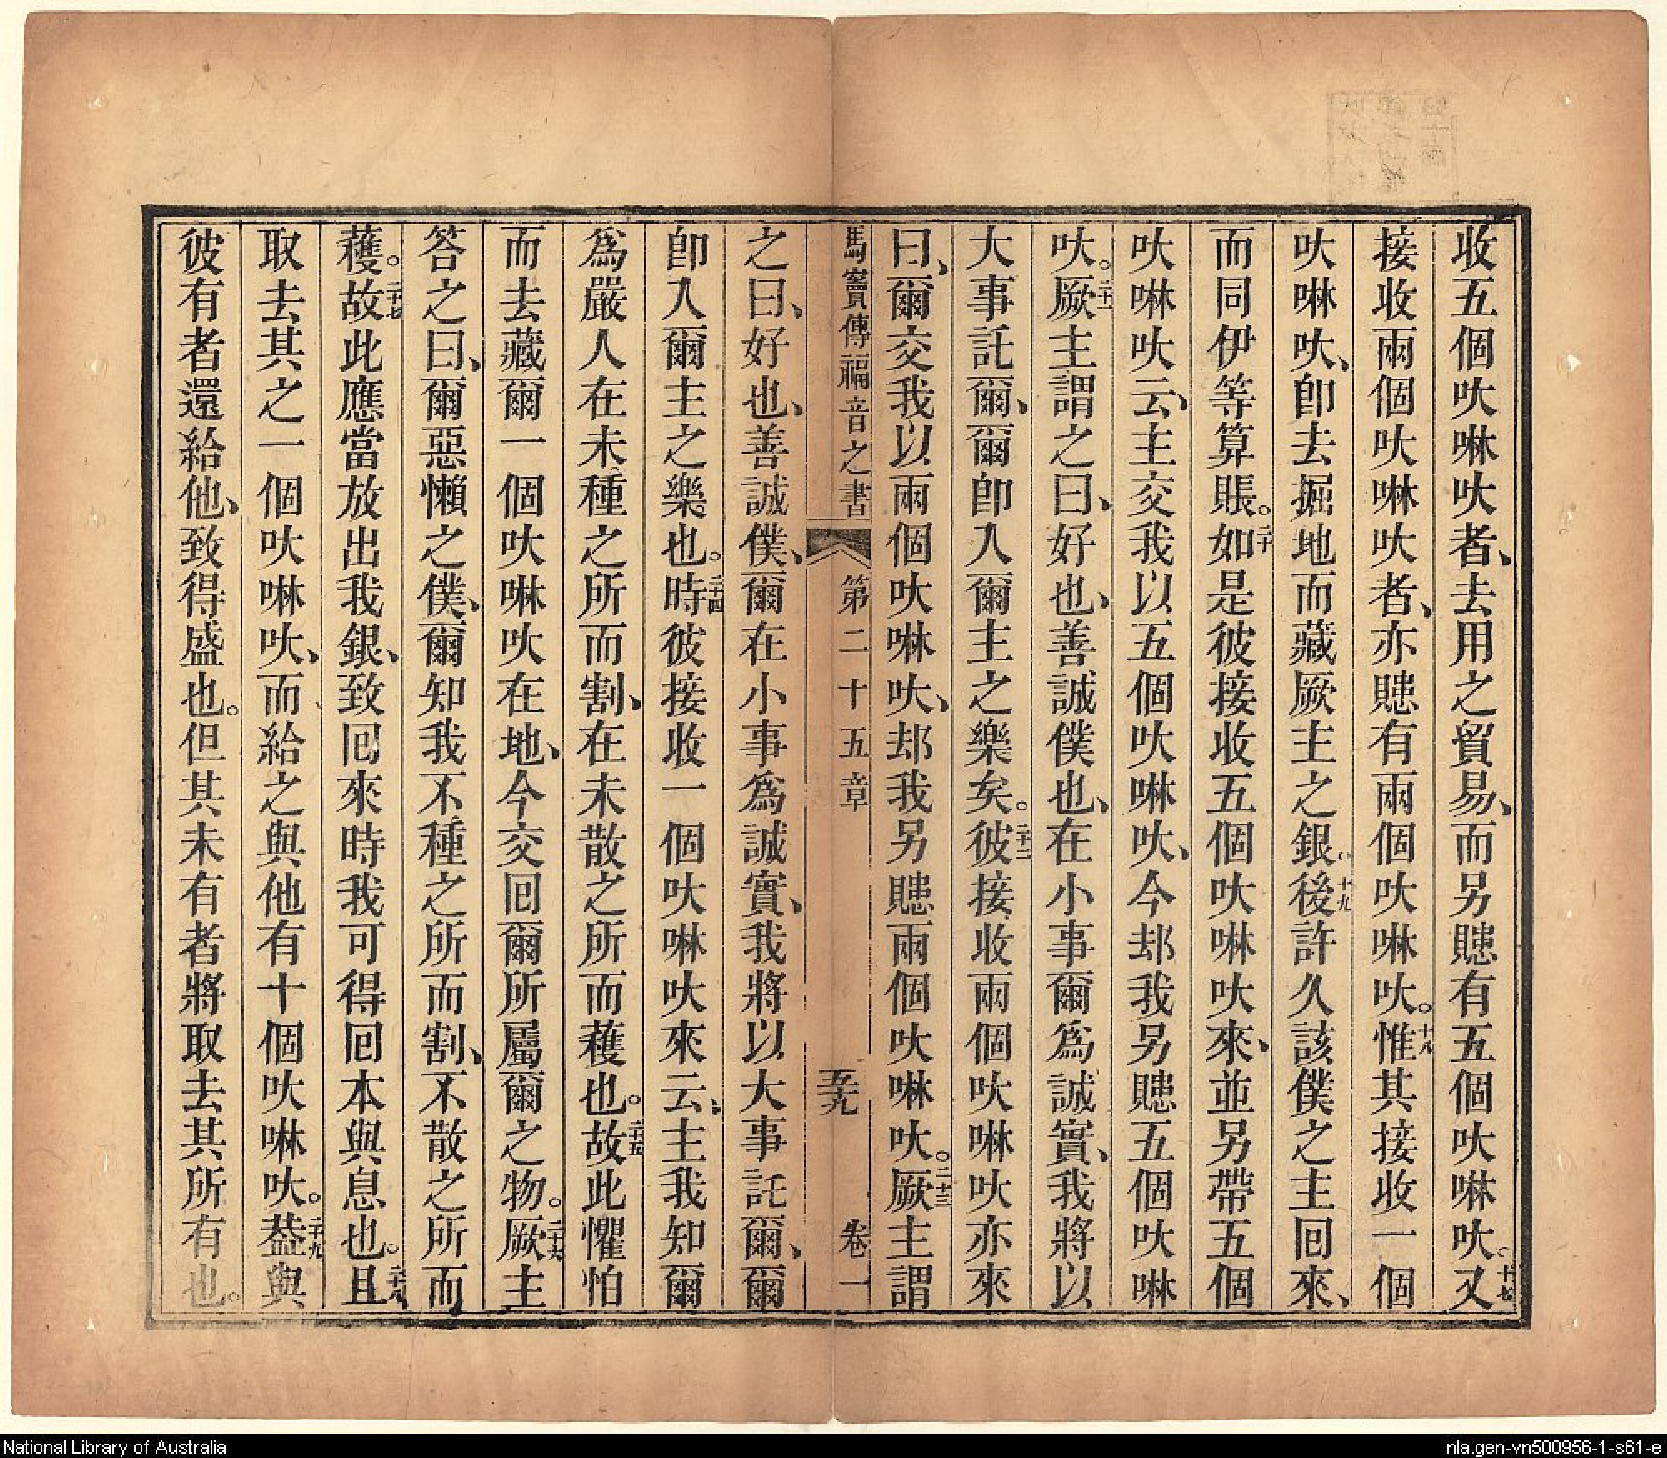 收五個吠啉吠者、去用之貿易、而另賺有五個吠啉吠。十七又
接收兩個吠啉吠者、亦賺有兩個吠啉吠。十八惟其接收一個
吠啉吠、卽去掘地而藏厥主之銀。十九後許久該僕之主囘來、
而同伊等算賬。二十如是彼接收五個吠啉吠來、並另帶五個
吠啉吠云、主交我以五個吠啉吠、今却我另賺五個吠啉
吠。二十一厥主謂之曰、好也、善誠僕也、在小事爾爲誠實、我將以
大事託爾、爾卽入爾主之樂矣。二十二彼接收兩個吠啉吠亦來
曰、爾交我以兩個吠啉吠、却我另賺兩個吠啉吠。二十三厥主謂
馬竇傳福音之書 第二十五章 五十九 卷一
之曰、好也、善誠僕、爾在小事爲誠實、我將以大事託爾、爾
卽入爾主之樂也。二十四時彼接收一個吠啉吠來云、主我知爾
爲嚴人在未種之所而割、在未散之所而穫也。二十五故此懼怕
而去藏爾一個吠啉吠在地、今交囘爾所屬爾之物。二十六厥主
答之曰、爾惡懶之僕、爾知我不種之所而割、不散之所而
穫。二十七故此應當放出我銀、致囘來時我可得囘本與息也。二十八且
取去其之一個吠啉吠、而給之與他有十個吠啉吠。二十九葢與
彼有者還給他、致得盛也。但其未有者將取去其所有也。
National Library of Australia
nla.gen-vn500956-1-s61-e